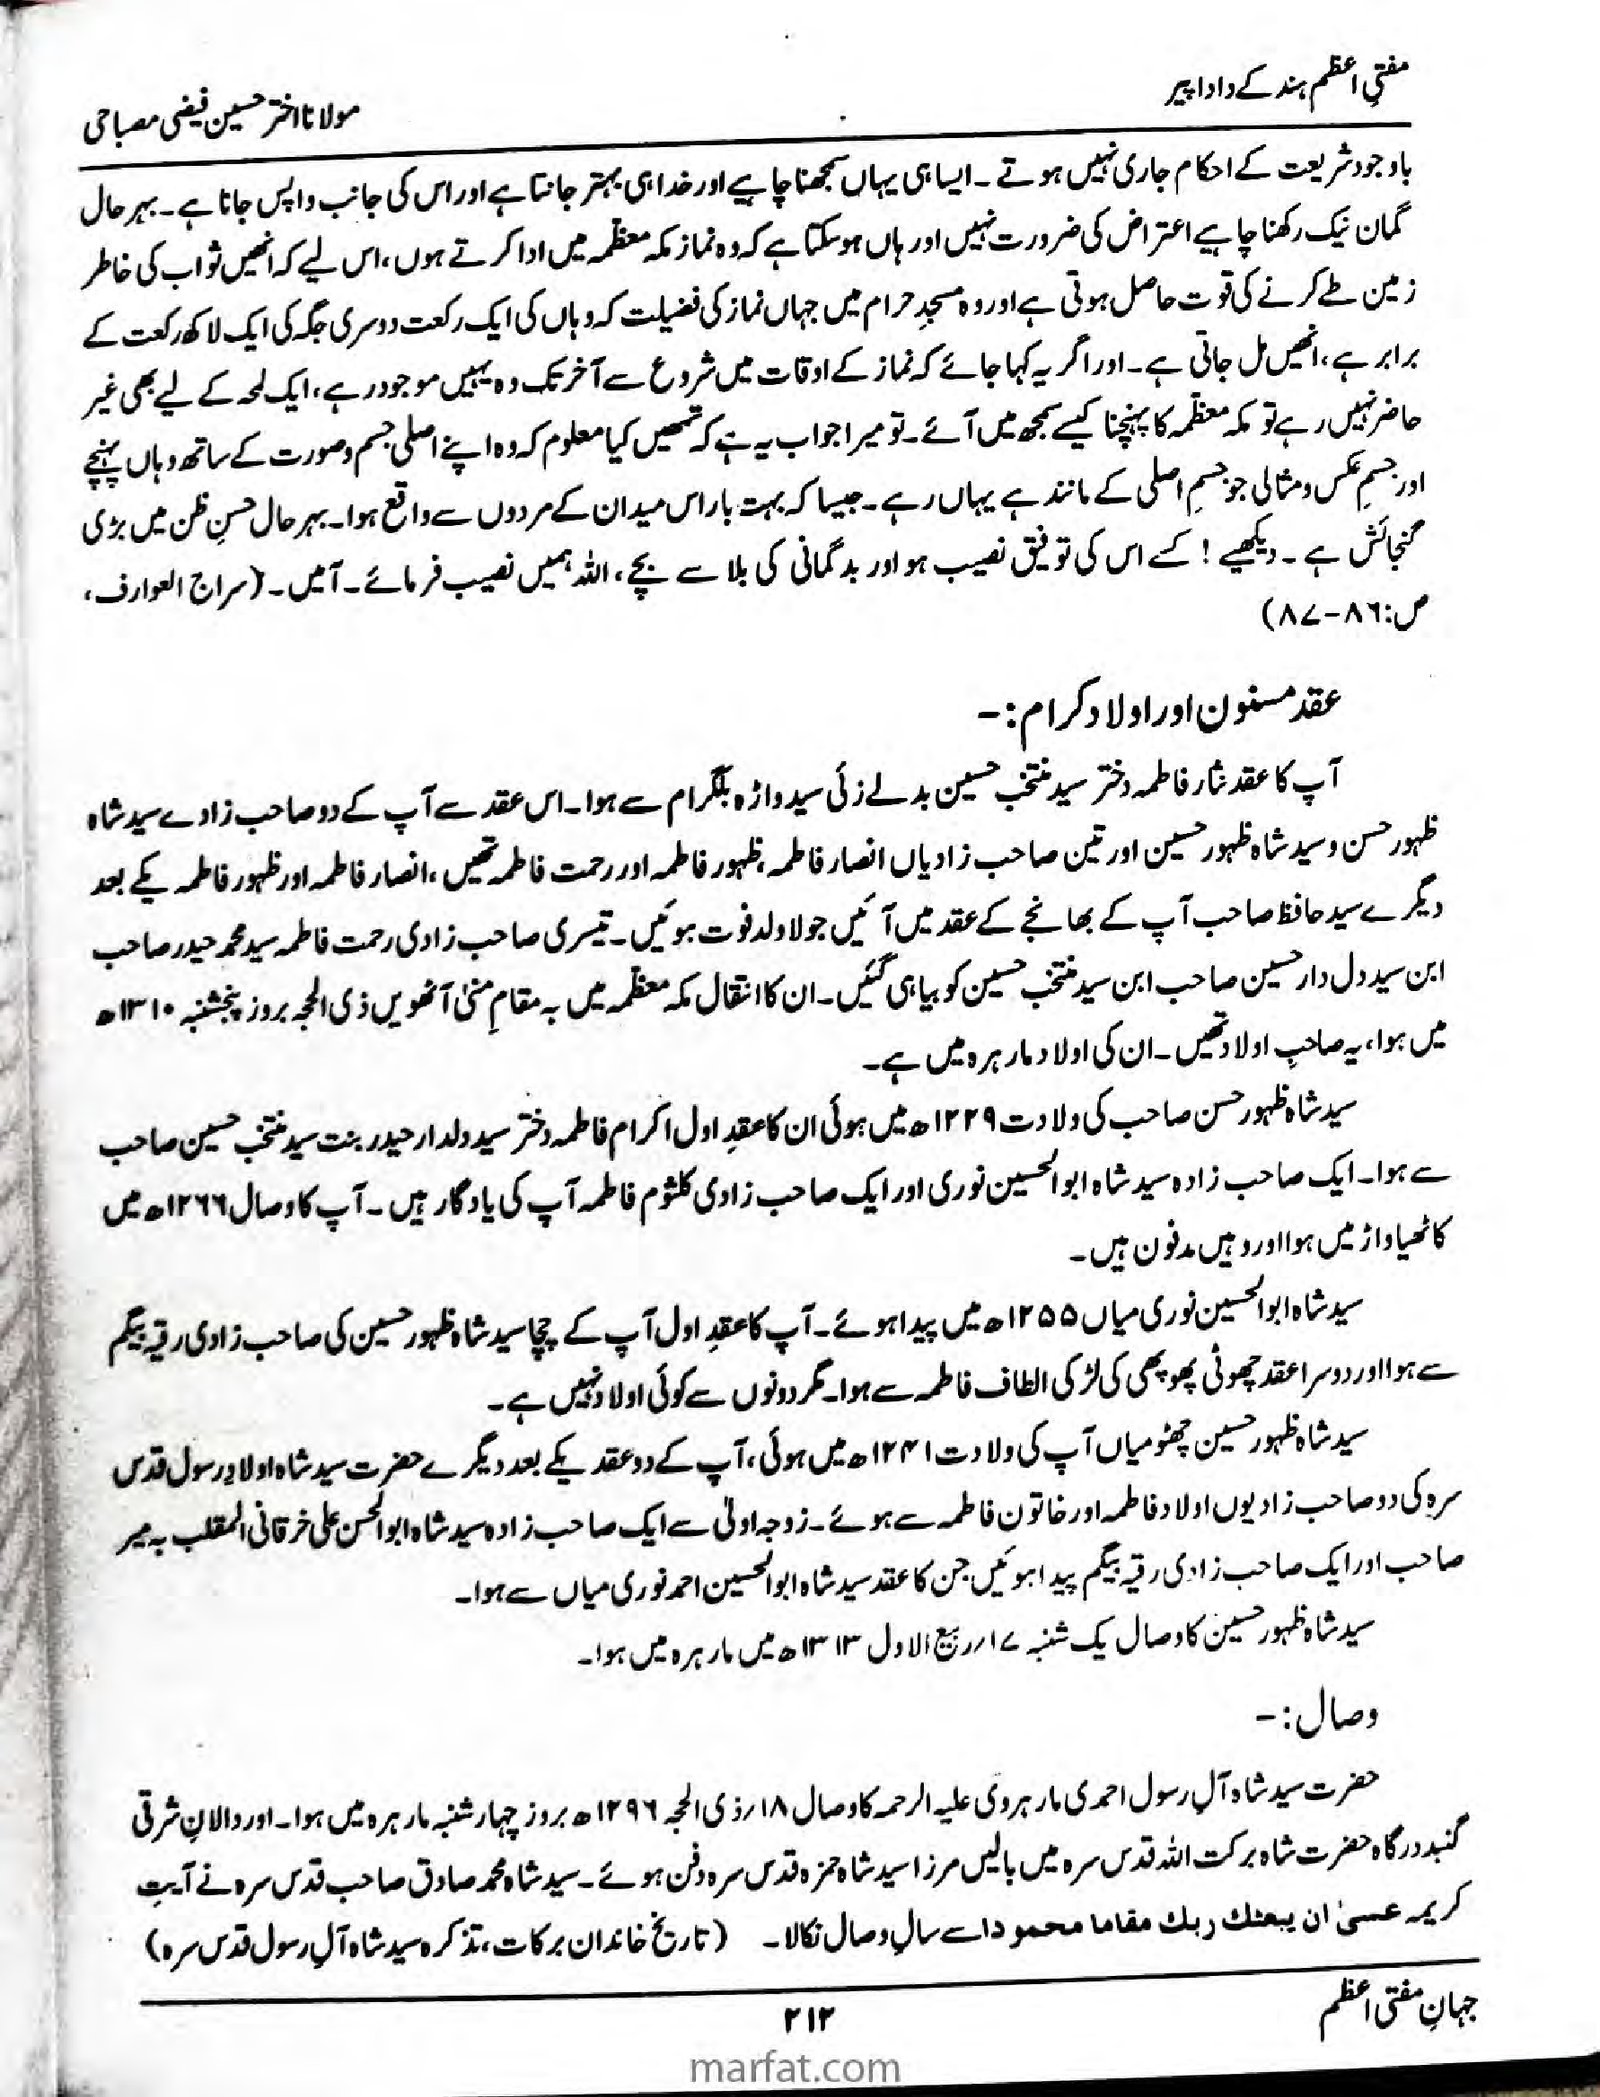 مفتیِ اعظم ہند کے دادا پیر
مولانا اختر حسین فیضی مصباحی
باوجود شریعت کے احکام جاری نہیں ہوتے ۔ ایسا ہی یہاں سمجھنا چاہیے اور خدا ہی بہتر جانتا ہے اور اس کی جانب واپس جانا ہے ۔ بہر حال
گمان نیک رکھنا چاہیے اعتراض کی ضرورت نہیں اور ہاں ہو سکتا ہے کہ وہ نماز مکہ معظّمہ میں ادا کرتے ہوں، اس لیے کہ انھیں ثواب کی خاطر
زمین طے کرنے کی قوت حاصل ہوتی ہے اور وہ مسجدِ حرام میں جہاں نماز کی فضیلت کہ وہاں کی ایک رکعت دوسری جگہ کی ایک لاکھ رکعت کے
برابر ہے، انھیں مل جاتی ہے ۔ اور اگر یہ کہا جائے کہ نماز کے اوقات میں شروع سے آخر تک وہ یہیں موجود رہے، ایک لمحہ کے لیے بھی غیر
حاضر نہیں رہے تو مکہ معظّمہ کا پہنچنا کیسے سمجھ میں آئے ۔ تو میرا جواب یہ ہے کہ تمھیں کیا معلوم کہ وہ اپنے اصلی جسم وصورت کے ساتھ وہاں پہنچے
اور جسمِ عکس ومثالی جو جسمِ اصلی کے مانند ہے یہاں رہے ۔ جیسا کہ بہت بار اس میدان کے مردوں سے واقع ہوا ۔ بہر حال حسنِ ظن میں بڑی
گنجائش ہے ۔ دیکھیے ! کسے اس کی توفیق نصیب ہو اور بدگمانی کی بلا سے بچے، اللہ ہمیں نصیب فرمائے ۔ آمین ۔ (سراج العوارف،
ص:۸۶-۸۷)
عقد مسنون اور اولاد کرام :-
آپ کا عقد نثار فاطمہ دختر سید منتخب حسین بدلے زئی سید واڑہ بلگرام سے ہوا ۔ اس عقد سے آپ کے دو صاحب زادے سید شاہ
ظہور حسن و سید شاہ ظہور حسین اور تین صاحب زادیاں انصار فاطمہ، ظہور فاطمہ اور رحمت فاطمہ تھیں، انصار فاطمہ اور ظہور فاطمہ یکے بعد
دیگرے سید حافظ صاحب آپ کے بھانجے کے عقد میں آئیں جو لاولد فوت ہوئیں ۔ تیسری صاحب زادی رحمت فاطمہ سید محمد حیدر صاحب
ابن سید دل دار حسین صاحب ابن سید منتخب حسین کو بیاہی گئیں ۔ ان کا انتقال مکہ معظّمہ میں بہ مقامِ منیٰ آٹھویں ذی الحجہ بروز پنجشنبہ ۱۳۱۰ھ
میں ہوا، یہ صاحبِ اولاد تھیں ۔ ان کی اولاد مارہرہ میں ہے ۔
سید شاہ ظہور حسن صاحب کی ولادت ۱۲۲۹ھ میں ہوئی ان کا عقدِ اول اکرام فاطمہ دختر سید ولدار حیدر بنت سید منتخب حسین صاحب
سے ہوا ۔ ایک صاحب زادہ سید شاہ ابوالحسین نوری اور ایک صاحب زادی کلثوم فاطمہ آپ کی یادگار ہیں ۔ آپ کا وصال ۱۲۶۶ھ میں
کاٹھیاواڑ میں ہوا اور وہیں مدفون ہیں ۔
سید شاہ ابوالحسین نوری میاں ۱۲۵۵ھ میں پیدا ہوئے ۔ آپ کا عقدِ اول آپ کے چچا سید شاہ ظہور حسین کی صاحب زادی رقیہ بیگم
سے ہوا اور دوسرا عقد چھوٹی پھوپھی کی لڑکی الطاف فاطمہ سے ہوا ۔ مگر دونوں سے کوئی اولاد نہیں ہے ۔
سید شاہ ظہور حسین چھٹو میاں آپ کی ولادت ۱۲۴۱ھ میں ہوئی، آپ کے دو عقد یکے بعد دیگرے حضرت سید شاہ اولادِ رسول قدس
سرہ کی دو صاحب زادیوں اولاد فاطمہ اور خاتون فاطمہ سے ہوئے ۔ زوجہ اولیٰ سے ایک صاحب زادہ سید شاہ ابوالحسن علی خرقانی المقلب بہ میر
صاحب اور ایک صاحب زادی رقیہ بیگم پیدا ہوئیں جن کا عقد سید شاہ ابوالحسین احمد نوری میاں سے ہوا ۔
سید شاہ ظہور حسین کا وصال یک شنبہ ۱۷/ربیع الاول ۱۳۱۳ھ میں مارہرہ میں ہوا ۔
وصال :-
حضرت سید شاہ آلِ رسول احمدی مارہروی علیہ الرحمہ کا وصال ۱۸/ذی الحجہ ۱۲۹۶ھ بروز چہار شنبہ مارہرہ میں ہوا ۔ اور دالانِ شرقی
گنبد درگاہ حضرت شاہ برکت اللہ قدس سرہ میں بالیں مرزا سید شاہ حمزہ قدس سرہ دفن ہوئے ۔ سید شاہ محمد صادق صاحب قدس سرہ نے آیتِ
کریمہ عسىٰ ان یبعثك ربك مقاما محمودا سے سالِ وصال نکالا ۔ (تاریخ خاندان برکات، تذکرہ سید شاہ آلِ رسول قدس سرہ)
جہانِ مفتی اعظم
۲۱۲
marfat.com